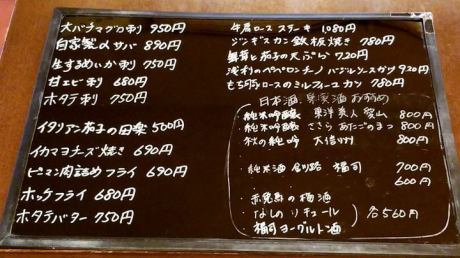 大バチマグロ刺 950円
自家製〆サバ 890円
生するめいか刺 750円
甘エビ刺 680円
ホタテ刺 750円
イタリアン茄子の田楽 500円
イカマヨチーズ焼き 690円
ピーマン肉詰めフライ 690円
ホッケフライ 680円
ホタテバター 750円
牛肩ロースステーキ 1080円
ジンギスカン鉄板焼き 780円
舞茸と茄子の天ぷら 720円
浅利のペペロンチーノ バジルソースがけ 920円
もち豚ロースのミルフィーユカツ 780円
日本酒、果実酒おすすめ
純米吟醸 東洋美人 愛山 800円
純米吟醸 ささら あたごのまつ 800円
秋の純吟 大信州 800円
純米酒 釧路 福司 700円
600円
赤兎馬の梅酒
なしのリキュール
福司ヨーグルト酒
各560円